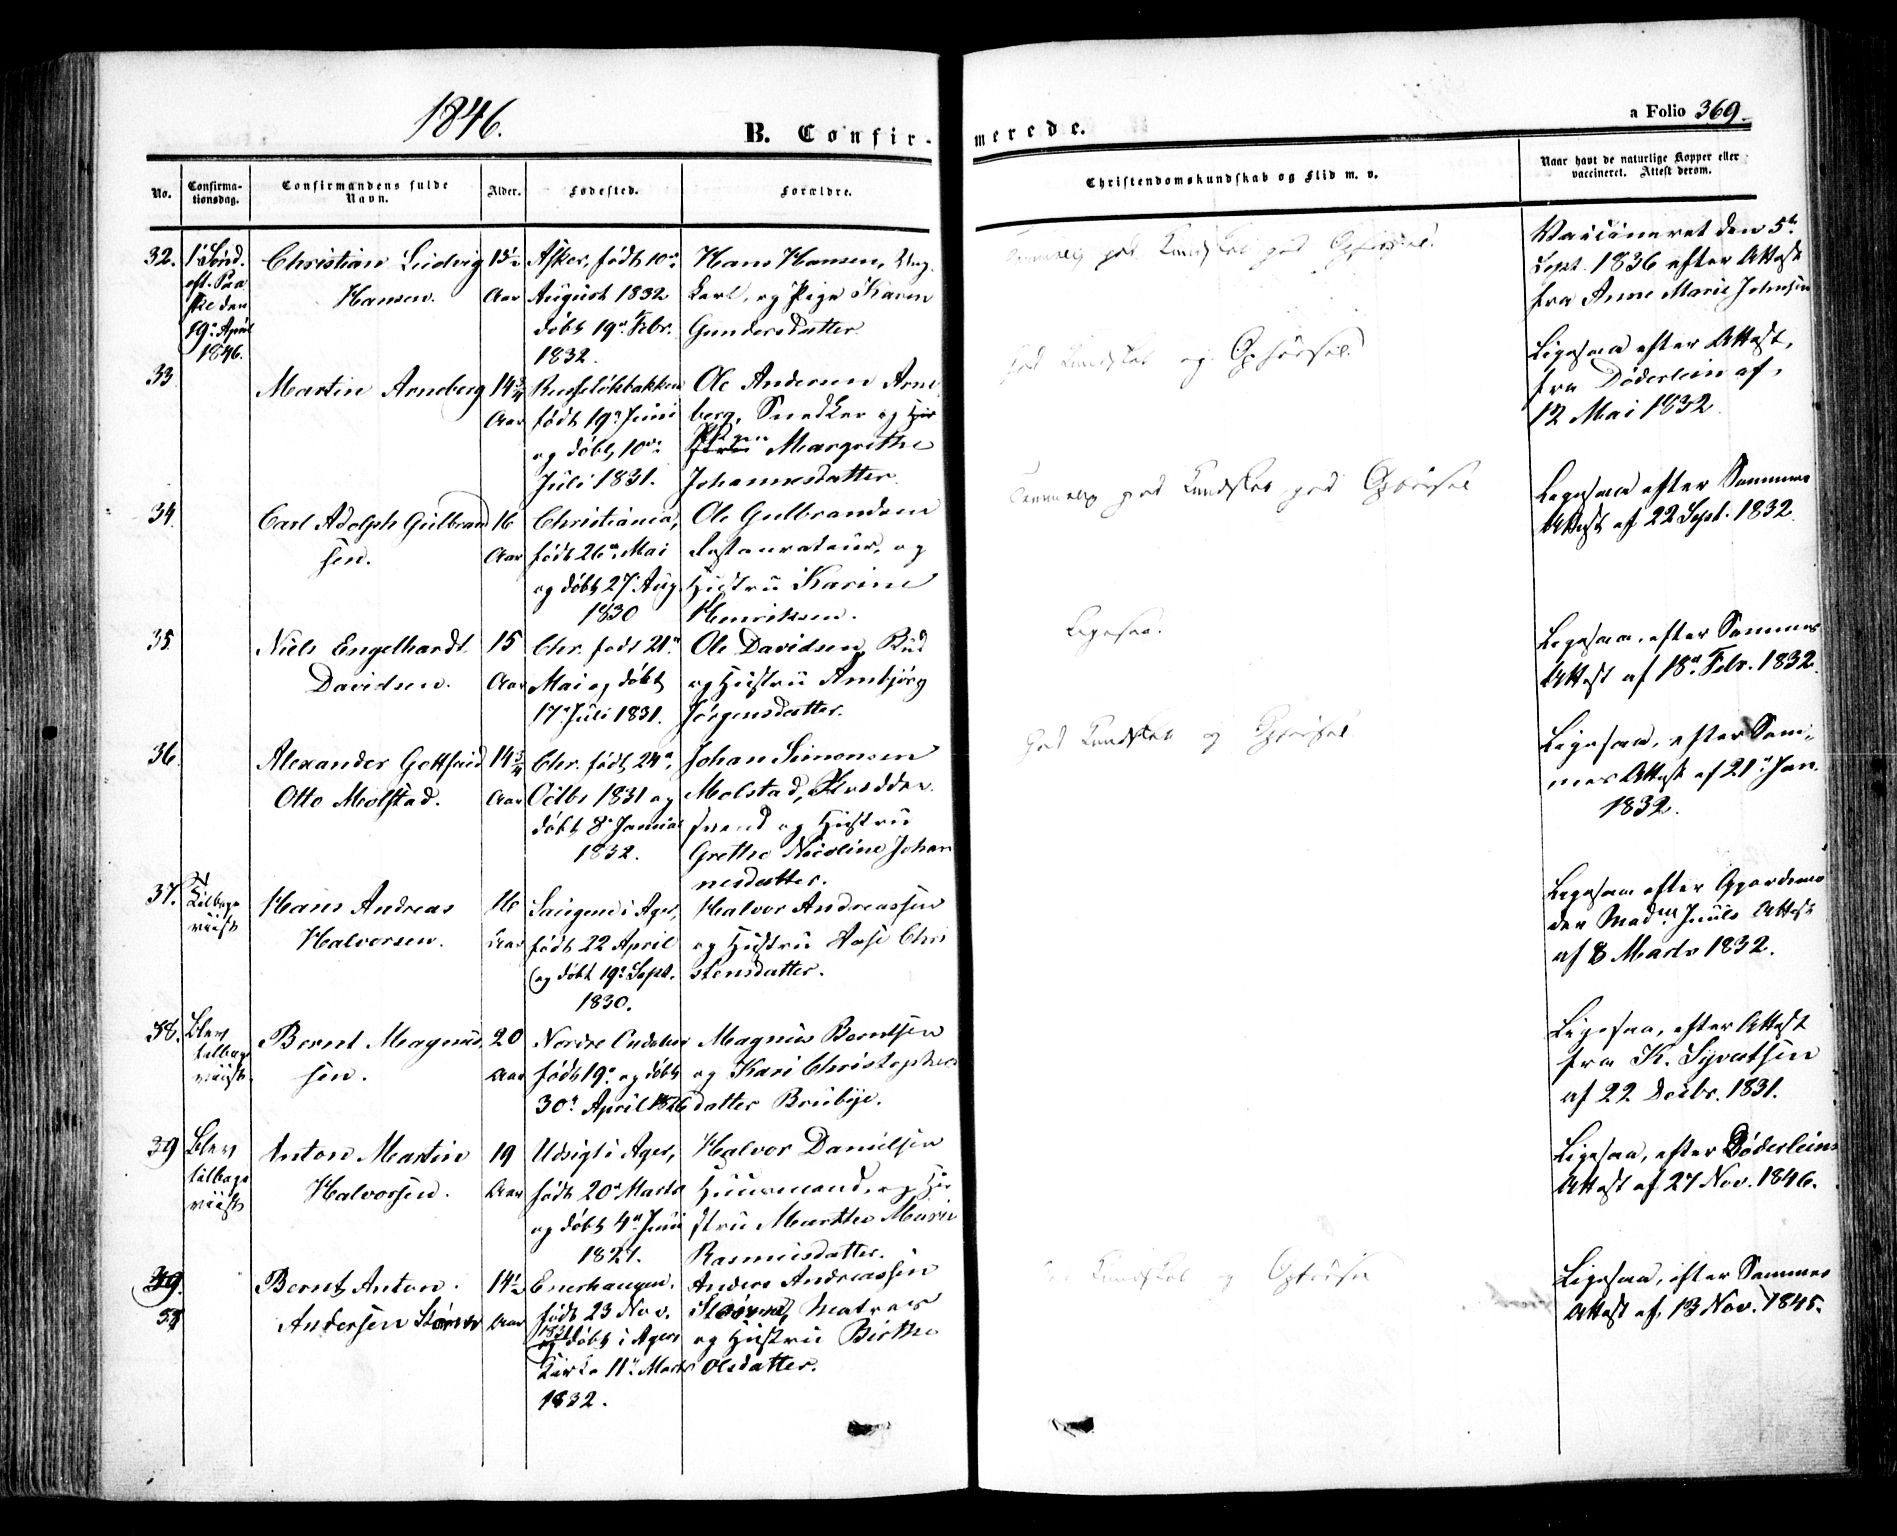 1846.
B. Confir-
merede.
a Folio 369.
No.
Confirma-
tionsdag.
Confirmandens fulde
Navn.
Alder.
Fødested.
Forældre.
Christendomskundskab og Flid m. v.
Naar havt de naturlige Kopper eller
vaccineret. Attest derom.
32.
1ste Sønd.
eft. Paa
ske den
19de April
1846.
Christian Ludvig
Hansen.
13½
Aar
Asker, født 10de
August 1832
døbt 19de Febr.
1832.
Hans Hansen, Ung-
karl, og Pige Karen
Gundersdatter.
god Kundskab god Opførsel.
Vaccineret den 5te
Sept. 1836 efter Attest
fra Anne Marie Johnsen
33
Martin Arneberg
14¾
Aar
Ruseløkbakken
født 19de Juni
og døbt 10de
Juli 1831.
Ole Andersen Arne
berg, Snedker og
Pigen Margrethe
Johannesdatter.
God Kundskab og Opførsel.
Ligesaa efter Attest,
fra Døderlein af,
12 Mai 1832.
34.
Carl Adolph Gulbrand
sen.
16
Aar
Christiania,
født 26de Mai
og døbt 27de Aug.
1830
Ole Gulbrandsen
Restaurateur, og
Hustru Karine
Henriksen.
Temmelig god Kundskab god Opførsel
Ligesaa efter Sammes
Attest af 22 Sept. 1832.
35.
Niels Engelhardt
Davidsen.
15
Aar
Chr. født 21de
Mai og døbt
17de Juli 1831.
Ole Davidsen, Bud
og Hustru Ambjørg
Jørgensdatter.
Ligesaa.
Ligesaa, efter Sammes
Attest af 18de Febr. 1832.
36.
Alexander Gottfried
Otto Molstad.
14¾
Aar
Chr. født 24de
Octbr 1831 og
døbt 8de Januar
1832.
Johan Simonsen
Molstad, Skrædder
svend og Hustru
Grethe Nicoline Johan
nesdatter.
God Kundskab og Opførsel
Ligesaa, efter Sam-
mes Attest af 21de Jan.
1832.
37.
Tilbage
viist
Hans Andreas
Halvorsen.
16
Aar
Saugene i Ager,
født 22 April
og døbt 19de Sept.
1830.
Halvor Andreassen
og Hustru Aase Chri
stensdatter.
Ligesaa efter Gjordemo
der Madm Juuls Attest
af 8 Marts 1832.
38.
Blev
tilbage
viist.
Bernt Magnus
sen.
20
Aar
Nordre
født 19de og døbt
30te April 1826
Magnus Berntsen
og Kari Christophers
datter Brubye.
Ligesaa, efter Attest
fra K. Syvertsen
af 22 Decbr. 1831.
39
Blev
tilbage
viist
Anton Martin
Halvorsen.
19
Aar
Udsigt i Ager,
født 20de Marts
og døbt 4de Juni
1827.
Halvor Danielsen
Huusmand, og Hu
stru Marthe Marie
Rasmusdatter.
Ligesaa, efter Døderleins
Attest af 27 Nov. 1846.
39.
Bernt Anton
Andersen Størmer
14½
Aar
Enerhaugen.
født 23 Nov.
1831
og døbt i Agers
Kirke 11te Marts
1832.
Anders Andreassen
Størmer, Matros
og Hustru Birthe
Olsdatter.
Kundskab og Opførsel
Ligesaa, efter Sammes
Attest af, 13 Nov. 1845.